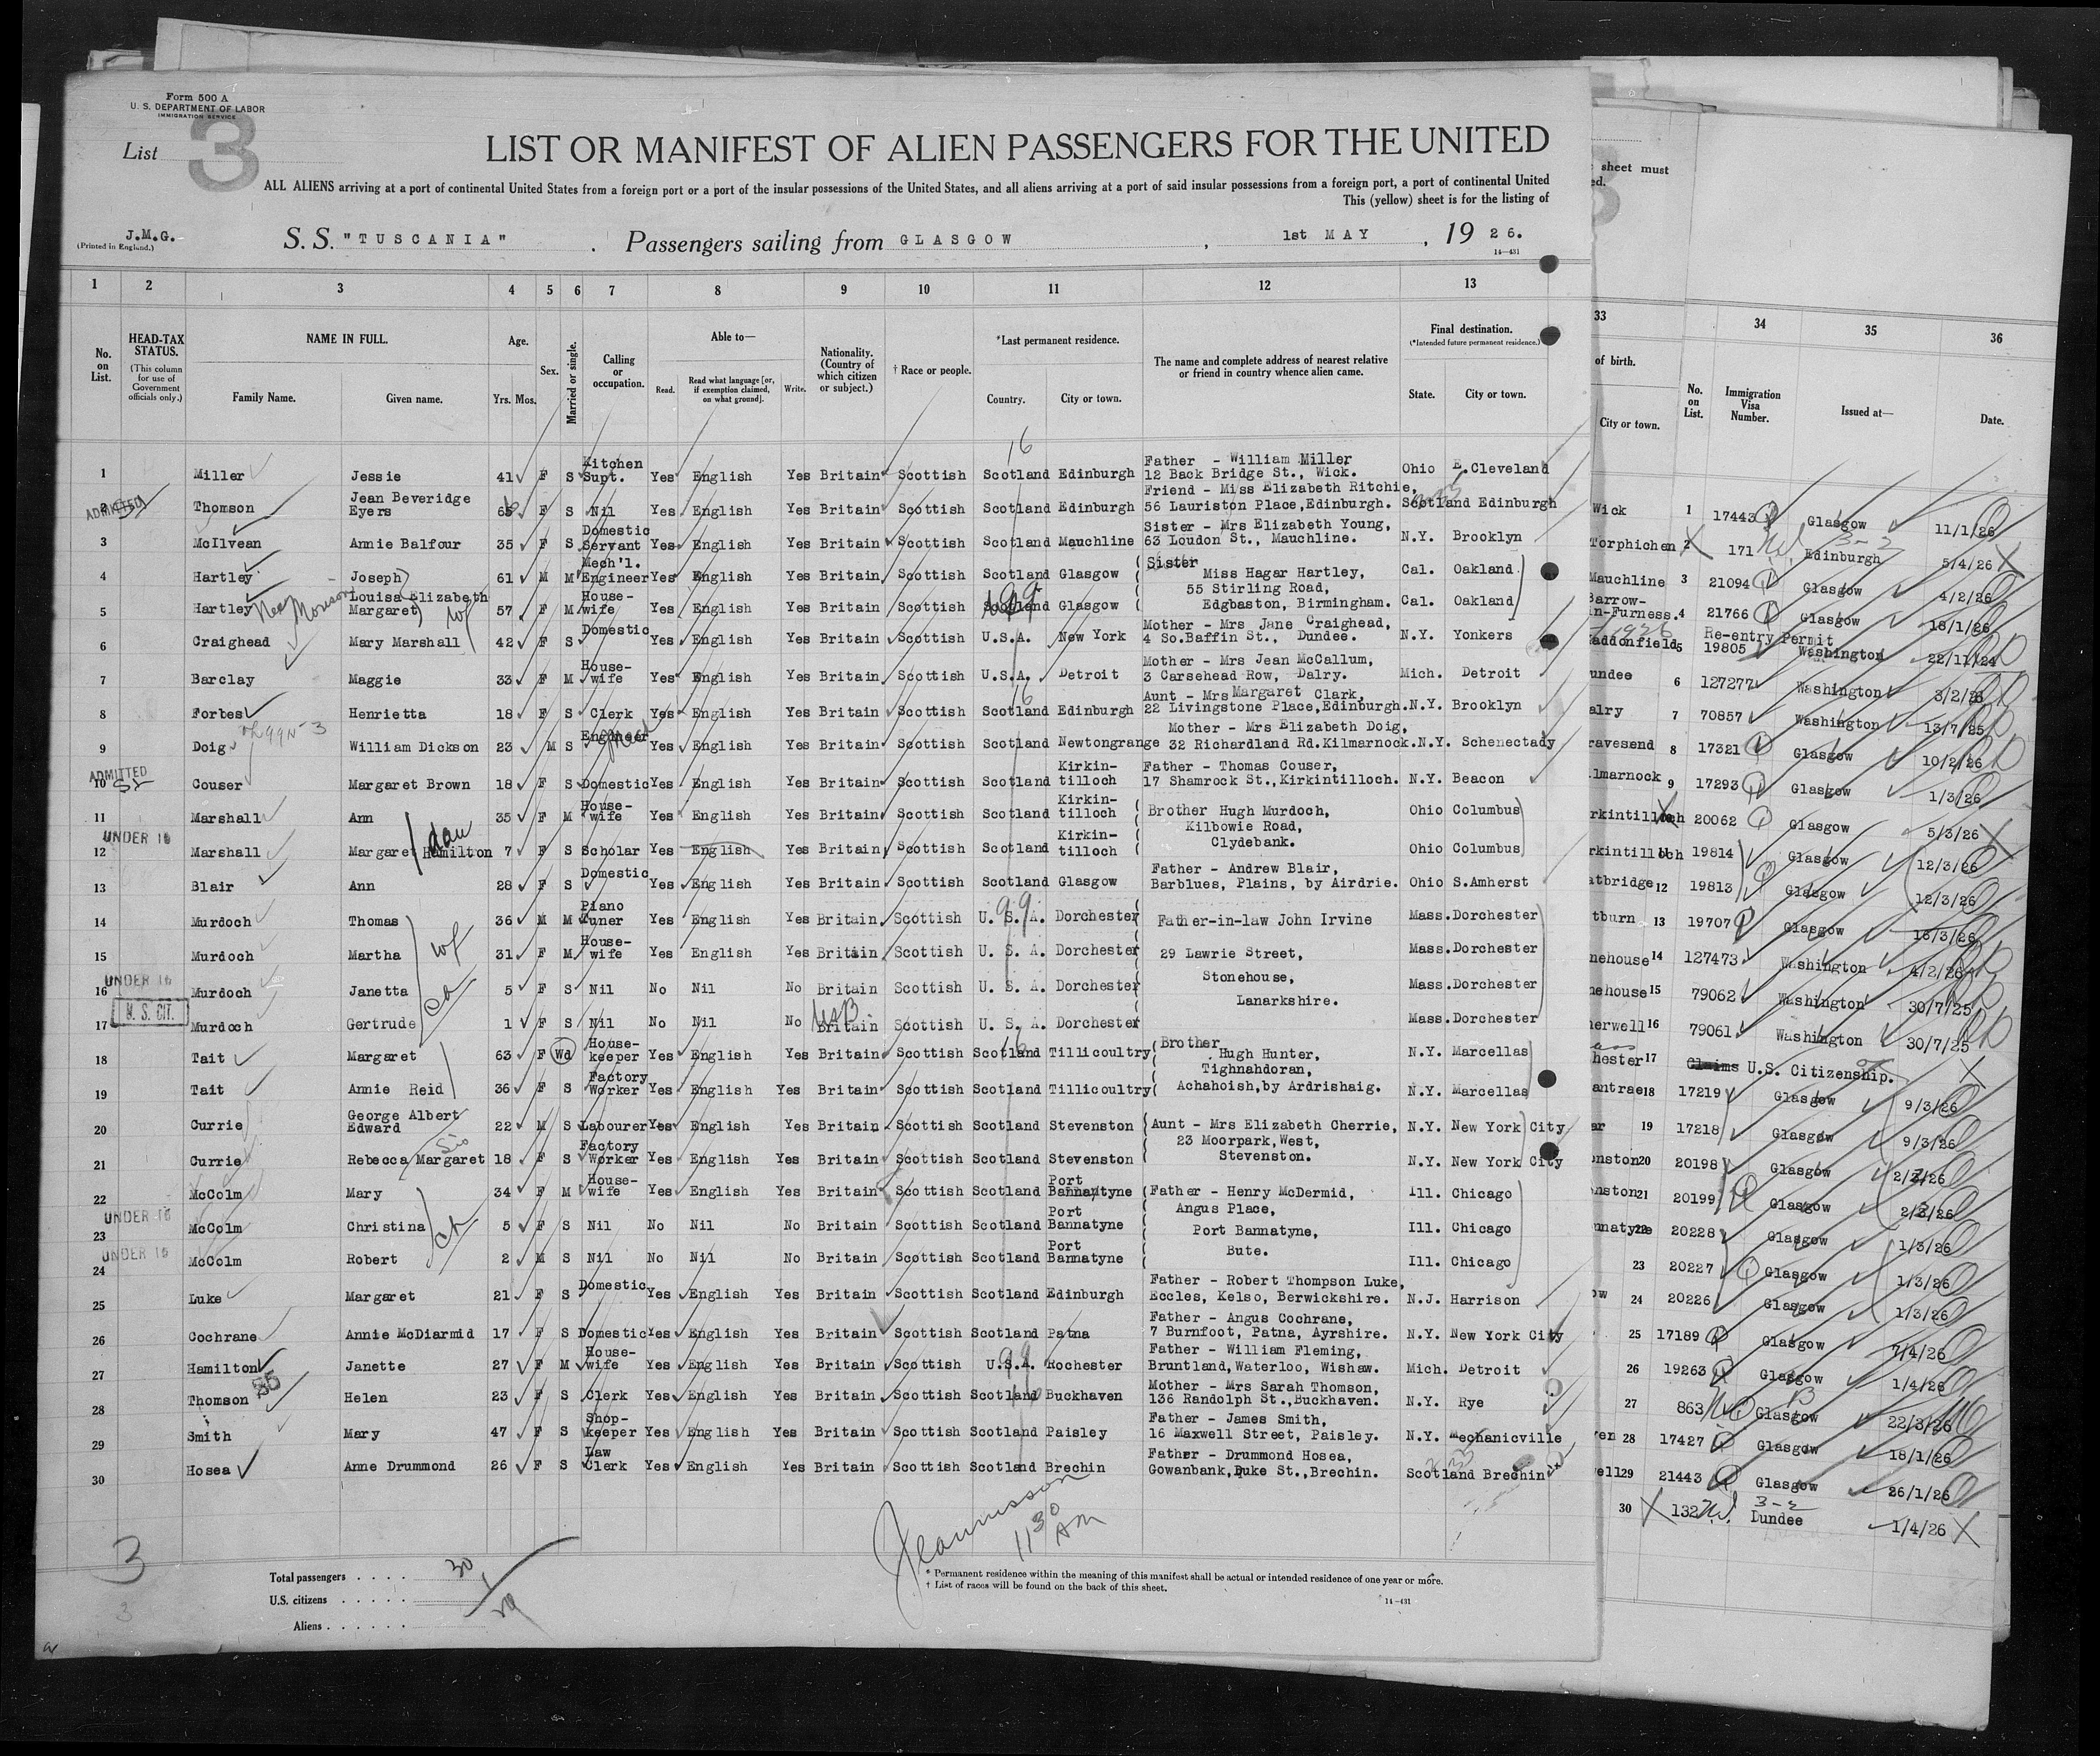 Form 500 A
U. S. DEPARTMENT OF LABOR
IMMIGRATION SERVICE
List 3
LIST OR MANIFEST OF ALIEN PASSENGERS FOR THE UNITED
ALL ALIENS arriving at a port of continental United States from a foreign port or a port of the insular possessions of the United States, and all aliens arriving at a port of said insular possessions from a foreign port, a port of continental United
This (yellow) sheet is for the listing of
J.M.G.
(Printed in England.)
S. S. "TUSCANIA" . Passengers sailing from GLASGOW , 1st MAY , 19 26.
14-431
1 2 3 4 5 6 7 8 9 10 11 12 13
No. on List.
HEAD-TAX STATUS.
(This column for use of Government officials only.)
NAME IN FULL.
Family Name. Given name.
Age.
Yrs. Mos.
Sex.
Married or single.
Calling or occupation.
Able to—
Read. Read what language [or, if exemption claimed, on what ground]. Write.
Nationality. (Country of which citizen or subject.)
† Race or people.
*Last permanent residence.
Country. City or town.
The name and complete address of nearest relative or friend in country whence alien came.
Final destination.
(*Intended future permanent residence.)
State. City or town.
16
1 Miller Jessie 41 F S Kitchen Supt. Yes English Yes Britain Scottish Scotland Edinburgh Father - William Miller 12 Back Bridge St., Wick. Ohio E. Cleveland
ADMITTED
2 Thomson Jean Beveridge Eyers F S Nil Yes English Yes Britain Scottish Scotland Edinburgh Friend - Miss Elizabeth Ritchie, 56 Lauriston Place, Edinburgh. Scotland Edinburgh
3 McIlvean Annie Balfour 35 F S Domestic Servant Yes English Yes Britain Scottish Scotland Mauchline Sister - Mrs Elizabeth Young, 63 Loudon St., Mauchline. N.Y. Brooklyn
4 Hartley Joseph 61 M M Mech'l. Engineer Yes English Yes Britain Scottish Scotland Glasgow Sister Miss Hagar Hartley, Cal. Oakland
5 Hartley Louisa Elizabeth Margaret wf 57 F M House-wife Yes English Yes Britain Scottish Scotland Glasgow 55 Stirling Road, Edgbaston, Birmingham. Cal. Oakland
6 Craighead Mary Marshall 42 F S Domestic Yes English Yes Britain Scottish U.S.A. New York Mother - Mrs Jane Craighead, 4 So.Baffin St., Dundee. N.Y. Yonkers
7 Barclay Maggie 33 F M House-wife Yes English Yes Britain Scottish U.S.A. Detroit Mother - Mrs Jean McCallum, 3 Carsehead Row, Dalry. Mich. Detroit
8 Forbes Henrietta 18 F S Clerk Yes English Yes Britain Scottish Scotland Edinburgh Aunt - Mrs Margaret Clark, 22 Livingstone Place, Edinburgh. N.Y. Brooklyn
9 Doig William Dickson 23 M S Engineer Yes English Yes Britain Scottish Scotland Newtongrange Mother - Mrs Elizabeth Doig, 32 Richardland Rd. Kilmarnock. N.Y. Schenectady
ADMITTED
10 Couser Margaret Brown 18 F S Domestic Yes English Yes Britain Scottish Scotland Kirkin-tilloch Father - Thomas Couser, 17 Shamrock St., Kirkintilloch. N.Y. Beacon
11 Marshall Ann 35 F M House-wife Yes English Yes Britain Scottish Scotland Kirkin-tilloch Brother Hugh Murdoch, Ohio Columbus
UNDER 16
12 Marshall Margaret Hamilton dau 7 F S Scholar Yes English Yes Britain Scottish Scotland Kirkin-tilloch Kilbowie Road, Clydebank. Ohio Columbus
13 Blair Ann 28 F S Domestic Yes English Yes Britain Scottish Scotland Glasgow Father - Andrew Blair, Barblues, Plains, by Airdrie. Ohio S.Amherst
14 Murdoch Thomas 36 M M Piano Tuner Yes English Yes Britain Scottish U. S. A. Dorchester Father-in-law John Irvine Mass. Dorchester
15 Murdoch Martha wf 31 F M House-wife Yes English Yes Britain Scottish U. S. A. Dorchester 29 Lawrie Street, Mass. Dorchester
UNDER 16
16 Murdoch Janetta 5 F S Nil No Nil No Britain Scottish U. S. A. Dorchester Stonehouse, Mass. Dorchester
U. S. CIT.
17 Murdoch Gertrude 1 F S Nil No Nil No USB Britain Scottish U. S. A. Dorchester Lanarkshire. Mass. Dorchester
18 Tait Margaret 63 F Wd House-keeper Yes English Yes Britain Scottish Scotland Tillicoultry Brother Hugh Hunter, N.Y. Marcellas
19 Tait Annie Reid 36 F S Factory Worker Yes English Yes Britain Scottish Scotland Tillicoultry Tighnahdoran, Achahoish, by Ardrishaig. N.Y. Marcellas
20 Currie George Albert Edward 22 M S Labourer Yes English Yes Britain Scottish Scotland Stevenston Aunt - Mrs Elizabeth Cherrie, N.Y. New York City
21 Currie Rebecca Margaret Sis 18 F S Factory Worker Yes English Yes Britain Scottish Scotland Stevenston 23 Moorpark, West, Stevenston. N.Y. New York City
22 McColm Mary 34 F M House-wife Yes English Yes Britain Scottish Scotland Port Bannatyne Father - Henry McDermid, Ill. Chicago
UNDER 16
23 McColm Christina ch 5 F S Nil No Nil No Britain Scottish Scotland Port Bannatyne Angus Place, Port Bannatyne, Ill. Chicago
UNDER 16
24 McColm Robert 2 M S Nil No Nil No Britain Scottish Scotland Port Bannatyne Bute. Ill. Chicago
25 Luke Margaret 21 F S Domestic Yes English Yes Britain Scottish Scotland Edinburgh Father - Robert Thompson Luke, Eccles, Kelso, Berwickshire. N.J. Harrison
26 Cochrane Annie McDiarmid 17 F S Domestic Yes English Yes Britain Scottish Scotland Patna Father - Angus Cochrane, 7 Burnfoot, Patna, Ayrshire. N.Y. New York City
27 Hamilton Janette 27 F M House-wife Yes English Yes Britain Scottish U.S.A. Rochester Father - William Fleming, Bruntland, Waterloo, Wishaw. Mich. Detroit
28 Thomson Helen 23 F S Clerk Yes English Yes Britain Scottish Scotland Buckhaven Mother - Mrs Sarah Thomson, 136 Randolph St., Buckhaven. N.Y. Rye
29 Smith Mary 47 F S Shop-keeper Yes English Yes Britain Scottish Scotland Paisley Father - James Smith, 16 Maxwell Street, Paisley. N.Y. Mechanicville
30 Hosea Anne Drummond 26 F S Law Clerk Yes English Yes Britain Scottish Scotland Brechin Father - Drummond Hosea, Gowanbank, Duke St., Brechin. Scotland Brechin
11 30 AM
3
Total passengers . . . . 30
U.S. citizens . . . . . 1
Aliens . . . . . . 29
* Permanent residence within the meaning of this manifest shall be actual or intended residence of one year or more.
† List of races will be found on the back of this sheet.
14-431
3
sheet must
ed.
33 34 35 36
of birth.
City or town.
No. on List.
Immigration Visa Number.
Issued at—
Date.
Wick 1 17443 Glasgow 11/1/26
Torphichen 2 171 Edinburgh 5/4/26
Mauchline 3 21094 Glasgow 4/2/26
Barrow-in-Furness. 4 21766 Glasgow 18/1/26
addonfield 5 Re-entry Permit 19805 Washington 22/11/24
undee 6 127277 Washington 3/2/26
alry 7 70857 Washington 13/7/25
ravesend 8 17321 Glasgow 10/2/26
lmarnock 9 17293 Glasgow 1/3/26
rkintilloch 20062 Glasgow 5/3/26
rkintilloch 11 19814 Glasgow 12/3/26
atbridge 12 19813 Glasgow 12/3/26
tburn 13 19707 Glasgow 15/3/26
nehouse 14 127473 Washington 4/2/26
nehouse 15 79062 Washington 30/7/25
herwell 16 79061 Washington 30/7/25
hester 17 Claims U.S. Citizenship.
antrae 18 17219 Glasgow 9/3/26
ar 19 17218 Glasgow 9/3/26
onston 20 20198 Glasgow 2/3/26
nston 21 20199 Glasgow 2/3/26
nnatyne 22 20228 Glasgow 1/3/26
23 20227 Glasgow 1/3/26
ow 24 20226 Glasgow 1/3/26
25 17189 Glasgow 7/4/26
26 19263 Glasgow 1/4/26
27 863 Glasgow 22/3/26
en 28 17427 Glasgow 18/1/26
well 29 21443 Glasgow 26/1/26
30 132 Dundee 1/4/26